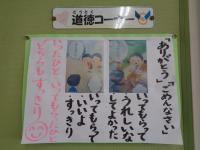 どうとく
道徳コーナー
「ありがとう」「ごめんなさい」
いってもらって
うれしいな
してよかった
いってもらって
いいよ
すっきり
いったひと・いってもらったひと
どっちもすっきり